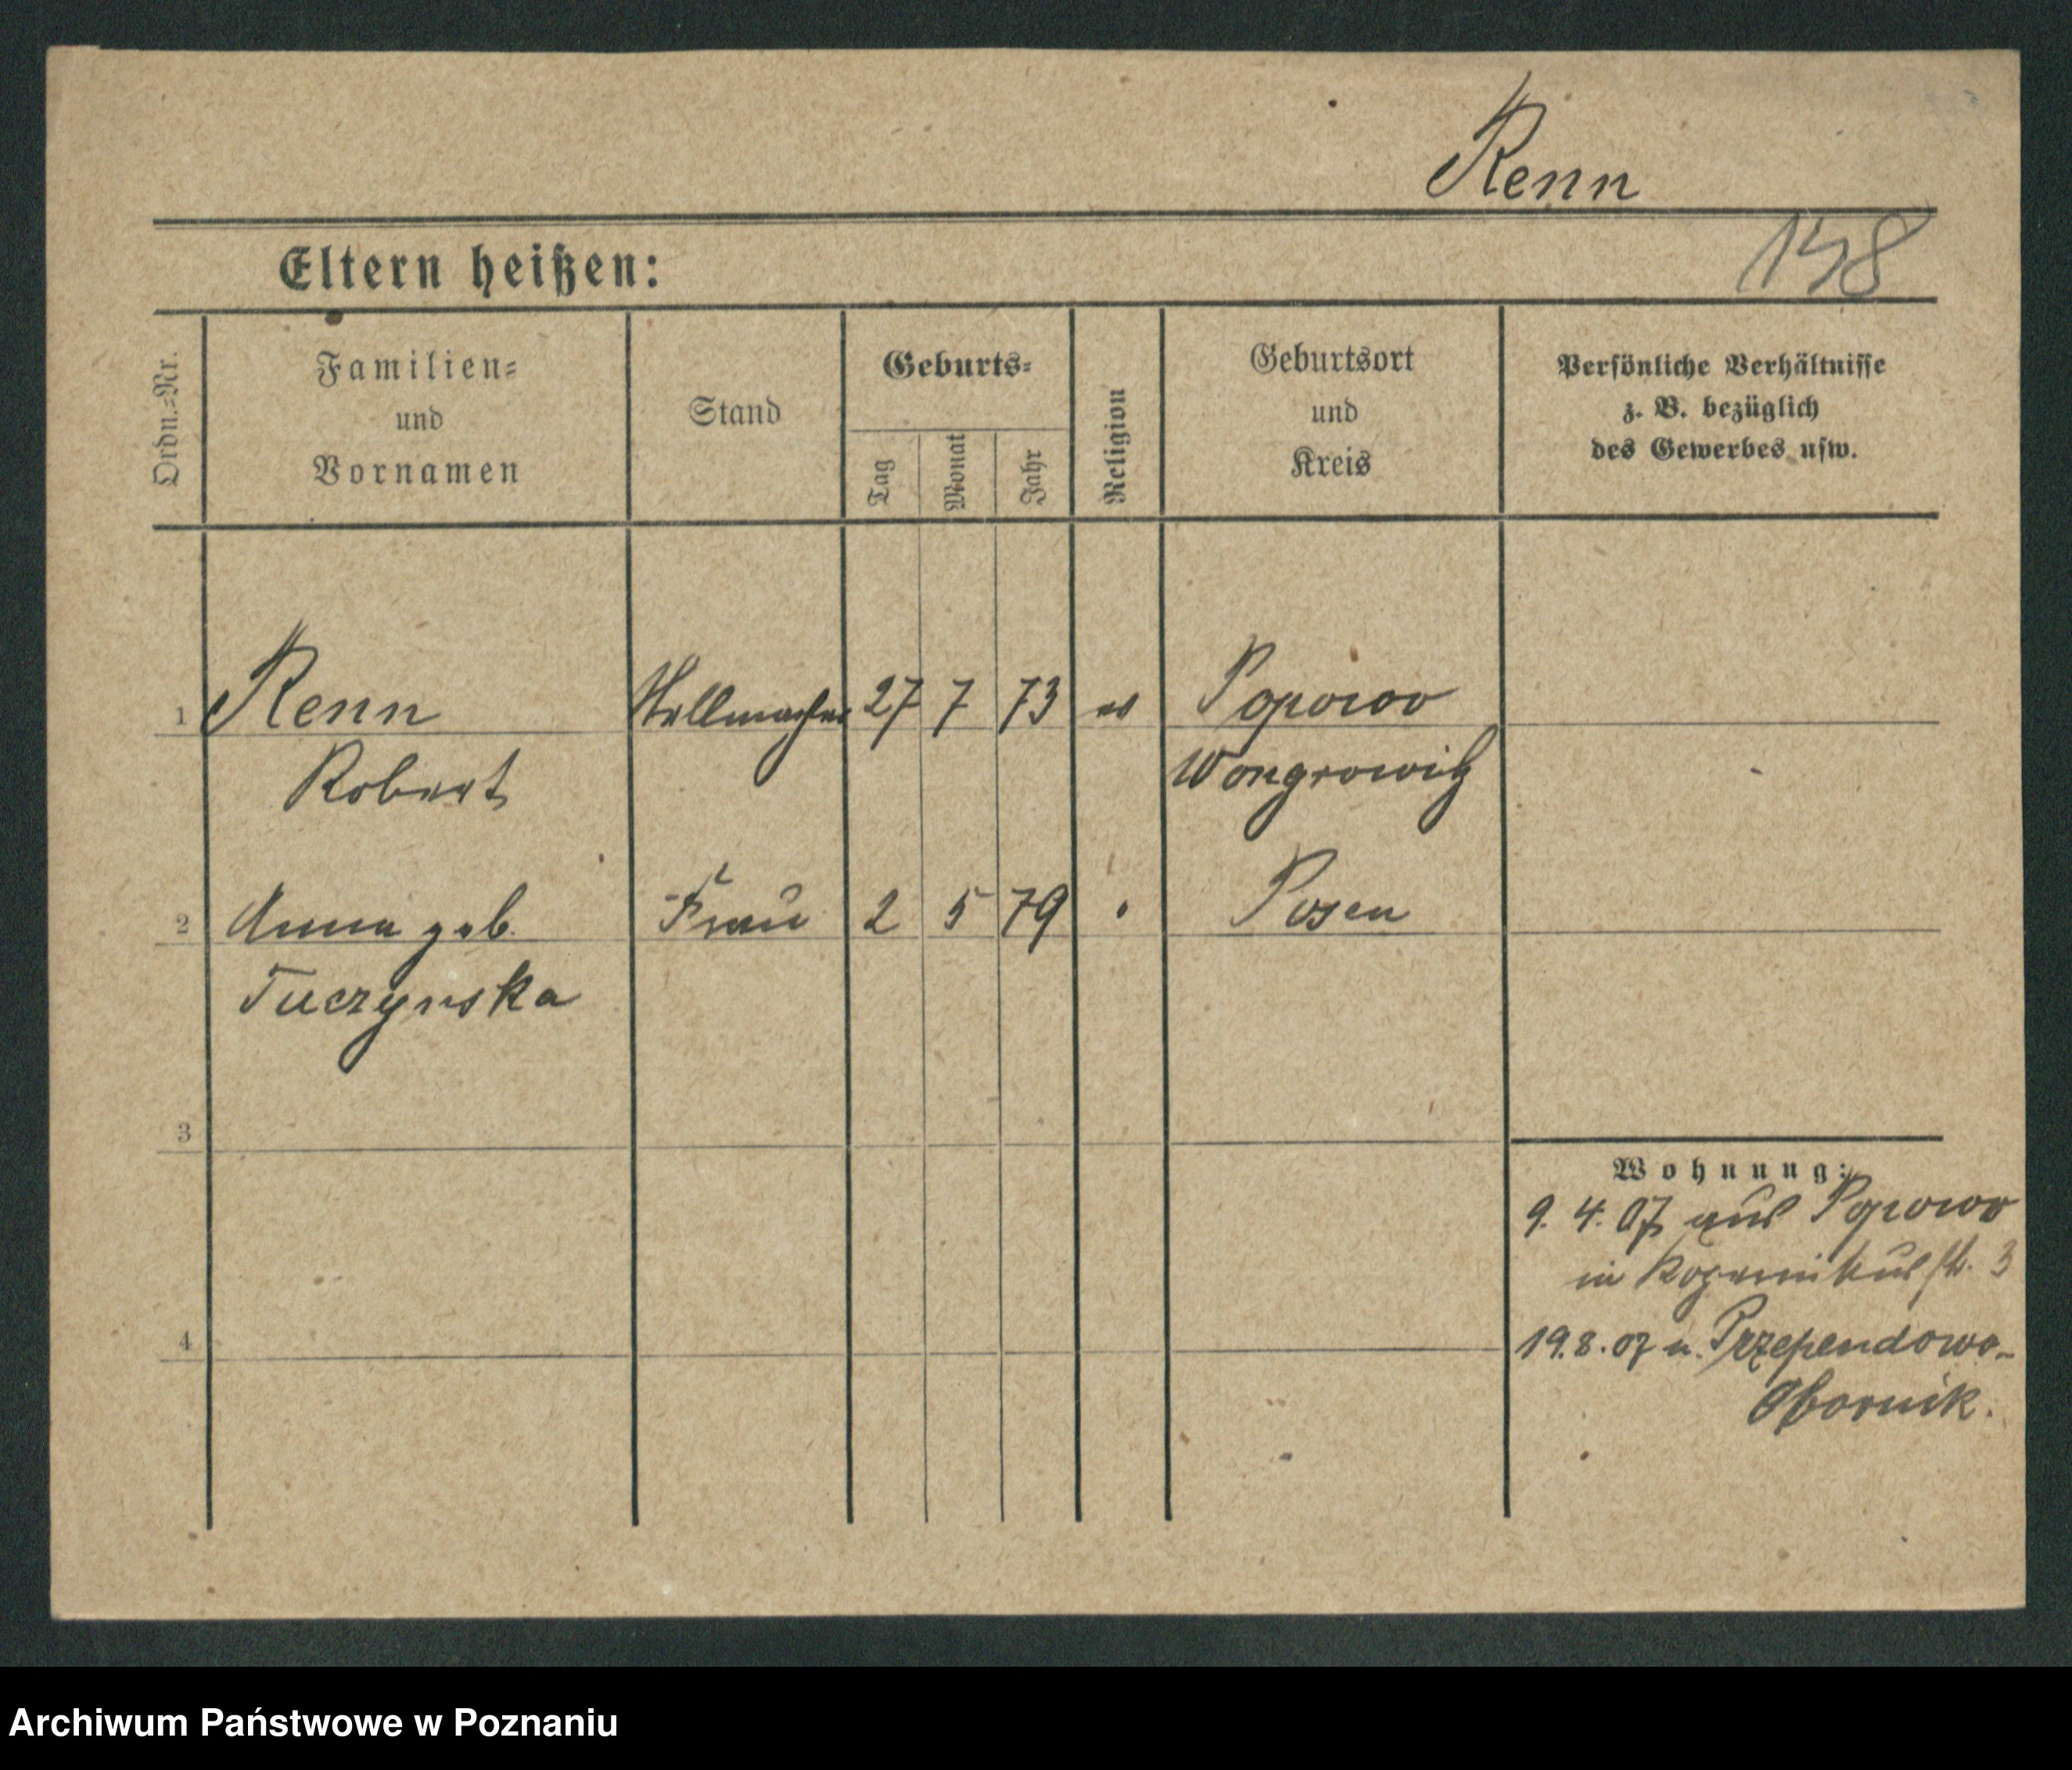 Renn
158
Eltern heißen:
Ordn.=Nr.
Familien=
und
Vornamen
Stand
Geburts=
Tag
Monat
Jahr
Religion
Geburtsort
und
Kreis
Persönliche Verhältnisse
z. B. bezüglich
des Gewerbes usw.
1 Renn Stellmacher 27 7 73 ev Popowo
Robert Wongrowitz
2 Anna geb. Frau 2 5 79 " Posen
Tuczynska
3
Wohnung:
9. 4. 07 aus Popowo
in Kopernikusstr. 3
4
19.8.07 n. Przependowo-
Obornik.
Archiwum Państwowe w Poznaniu